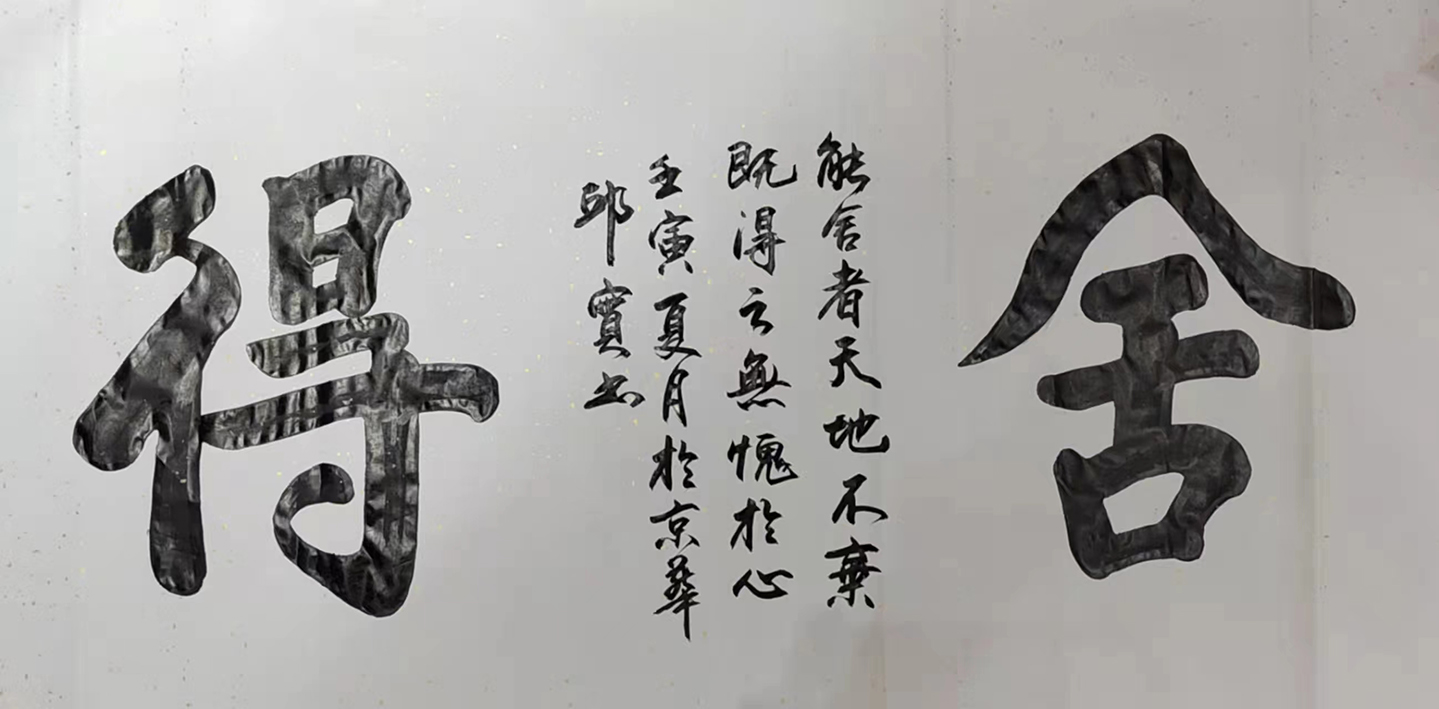 舍
能舍者天地不棄
既得之無愧於心
壬寅夏月於京華
邱實书
得